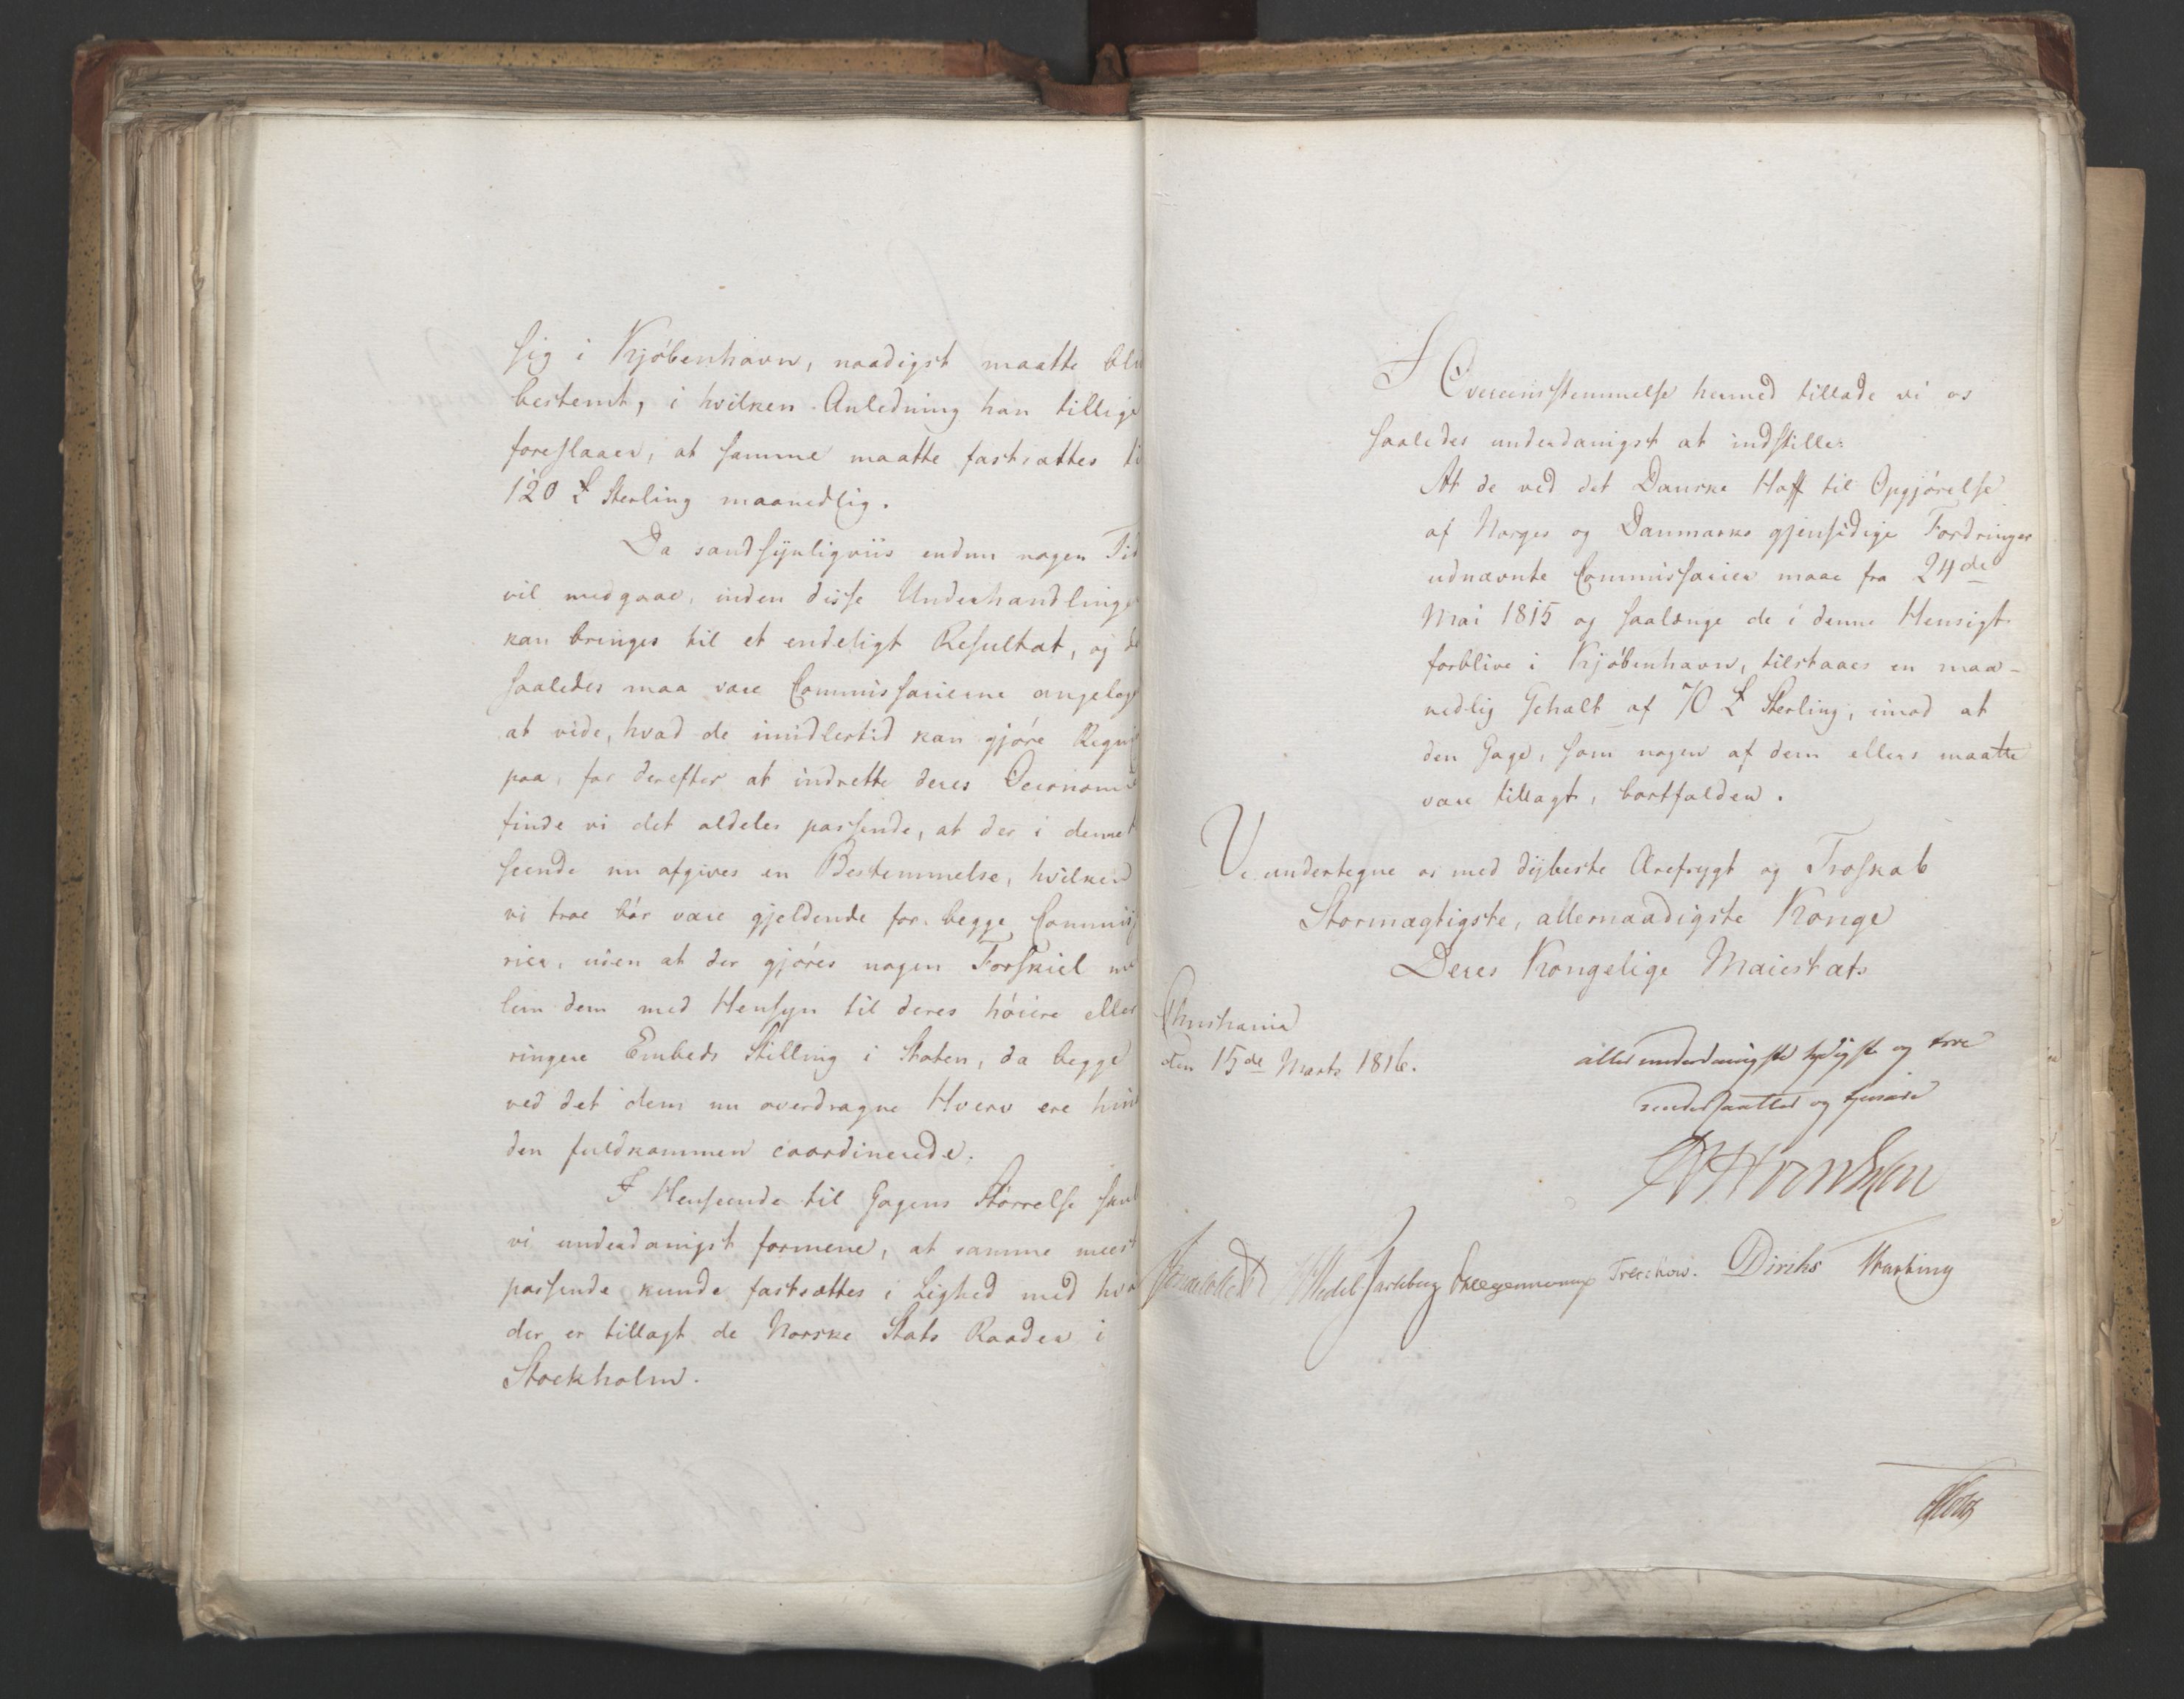 sig i Kjøbenhavn, naadigst maatte bli
bestemt, i hvilken Anledning han tillige
foreslaaer, at samme maatte fastsættes ti
120 £ Sterling maanedlig.
Da sandsynligviis endnu nogen Tid
vil medgaae, inden disse Underhandlinge
kan bringes til et endeligt Resultat, og de
saaledes maa være Commissairerne angelag
at vide, hvad de imidlertid kan gjøre Regn
paa, for derefter at indrette deres Oeconom
finde vi det aldeles passende, at der i denne
seende nu afgives en Bestemmelse, hvilken
vi troe bør være gjeldende for begge Commiss
rier, uden at der gjøres nogen Forskiel me
lem dem med Hensyn til deres høiere eller
ringere Embeds Stilling i Staten, da begge
ved det dem nu overdragne Hverv ere hin
den fuldkommen coordinerede.
I Henseende til Gagens Størrelse skul
vi underdanigst formene, at samme meest
passende kunde fastsættes i Lighed med hva
der er tillagt de Norske Stats Raader i
Stockholm.
I Overeensstemmelse hermed tillade vi os
saaledes underdanigst at indstille:
At de ved det Danske Hoff til Opgjørelse
af Norges og Danmarks gjensidige Fordringer
udnævnte Commissarier maae fra 24de
Mai 1815 og saalænge de i denne Hensigt
forblive i Kjøbenhavn, tilstaaes en maa-
nedlig Gehalt af 70 £ Sterling, imod at
den Gage, som nogen af dem ellers maatte
være tillagt, bortfalder.
Vi undertegne os med dybeste Ærefrygt og Troskab
Stormægtigste, allernaadigste Konge
Deres Kongelige Maiestæts
Christiania
den 15de Marts 1816.
allerunderdanigste lydigste og troe
undersaatter og tjenere
Sommerfeldt Wedel Jarlsberg Treschow. Diriks Motzfeldt